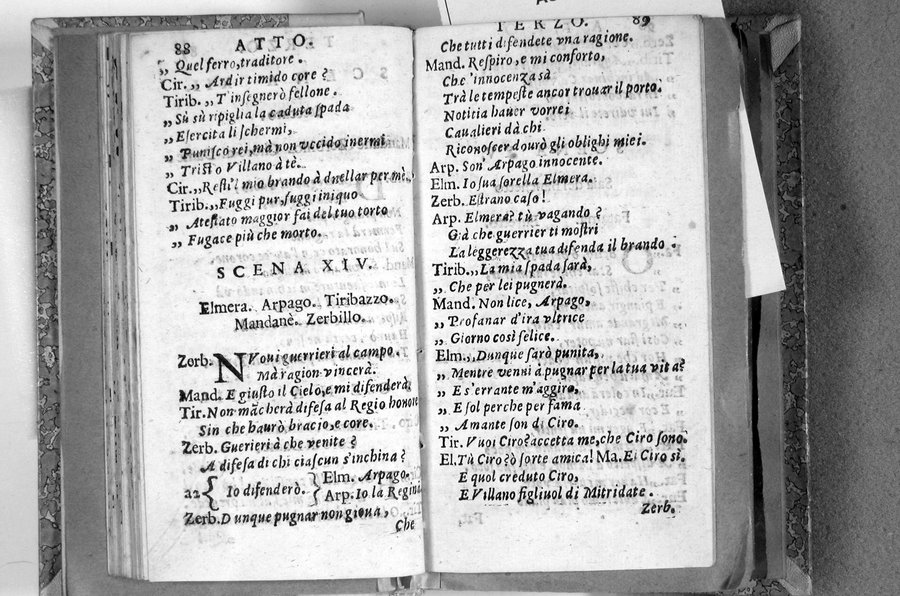 88 ATTO.
„ Quel ferro, traditore.
Cir. „ Ardir timido core?
Tirib. „ T'insegnerò fellone.
„ Sù sù ripiglia la caduta spada
„ Esercita li schermi,
„ Punisco rei, mà non uccido inermi
„ Tristo Villano à tè.
Cir. „ Resti'l mio brando à duellar per mè.
Tirib. „ Fuggi pur, fuggi iniquo
„ Atestato maggior fai del tuo torto
„ Fugace più che morto.
SCENA XIV.
Elmera. Arpago. Tiribazzo.
Mandane. Zerbillo.
Zorb. NVoui guerrieri al campo.
Mà ragion vincerà.
Mand. E giusto il Cielo, e mi difenderà,
Tir. Non mãcherà difesa al Regio honore
Sin che haurò bracio, e core.
Zerb. Guerieri à che venite?
A difesa di chi ciascun s'inchina?
a2 { Io difenderò. } Elm. Arpago.
Arp. Io la Regina
Zerb. Dunque pugnar non gioua,
Che
TERZO. 89
Che tutti difendete vna ragione.
Mand. Respiro, e mi conforto,
Che 'innocenza sà
Trà le tempeste ancor trouar il porto.
Notitia hauer vorrei
Caualieri dà chi
Riconoscer dourò gli oblighi miei.
Arp. Son' Arpago innocente.
Elm. Io sua sorella Elmera.
Zerb. Estrano caso!
Arp. Elmera? tù vagando?
Già che guerrier ti mostri
La leggerezza tua difenda il brando.
Tirib. „ La mia spada sarà,
„ Che per lei pugnerà.
Mand. Non lice, Arpago,
„ Profanar d'ira vltrice
„ Giorno così felice.
Elm. „ Dunque sarò punita,
„ Mentre venni à pugnar per la tua vita?
„ E s'errante m'aggiro,
„ E sol perche per fama
„ Amante son di Ciro.
Tir. Vuoi Ciro? accetta me, che Ciro sono.
El. Tù Ciro? ò sorte amica! Ma. Ei Ciro sì.
E quol creduto Ciro,
E Villano figliuol di Mitridate.
Zerb.